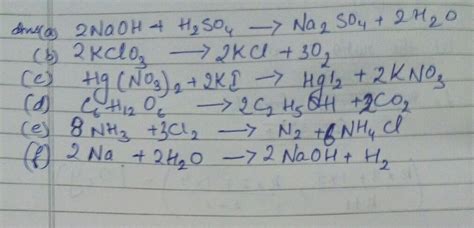 Ans (a) 2NaOH + H₂SO₄ → Na₂SO₄ + 2H₂O
(b) 2KClO₃ → 2KCl + 3O₂
(c) Hg(NO₃)₂ + 2KI → HgI₂ + 2KNO₃
(d) C₆H₁₂O₆ → 2C₂H₅OH + 2CO₂
(e) 8NH₃ + 3Cl₂ → N₂ + 6NH₄Cl
(f) 2Na + 2H₂O → 2NaOH + H₂